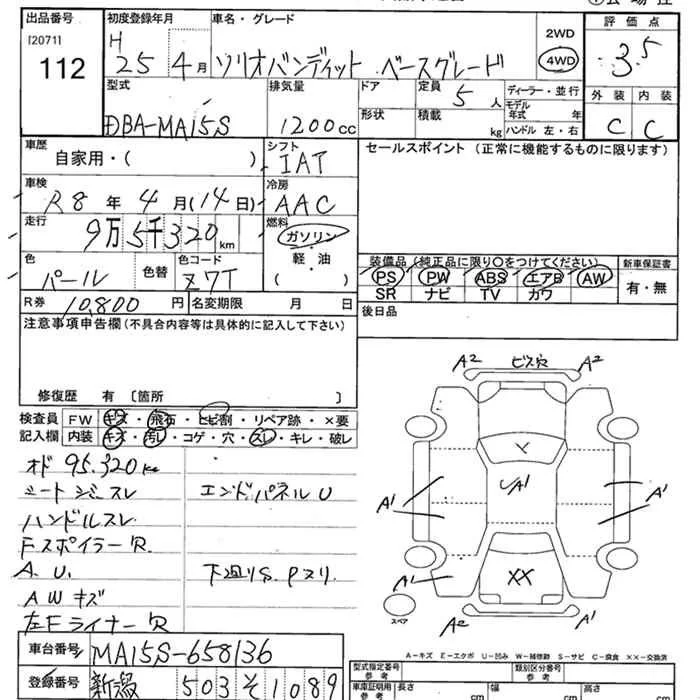 出品番号
[2071]
112
初度登録年月
H 25 4月
車名・グレード
ソリオバンディット ベースグレード
2WD
4WD
評価点
3.5
外装 内装
C C
型式
DBA-MA15S
排気量
1200cc
ドア
形状
定員
5人
積載
kg
ディーラー・並行
モデル年式 年
ハンドル 左・右
車歴
自家用・( )
シフト
IAT
セールスポイント (正常に機能するものに限ります)
車検
R8年 4月(14日)
冷房
AAC
走行
9万5千320km
燃料
ガソリン
軽・油
( )
色
パール
色替
色コード
Z7T
装備品(純正品に限り○をつけてください)
PS PW ABS エアB AW
SR ナビ TV カワ
新車保証書
有・無
R券 10,800円
名変期限 月 日
後日品
注意事項申告欄(不具合内容等は具体的に記入して下さい)
修復歴 有〔箇所 〕
検査員記入欄
FW キズ・飛石・ヒビ割・リペア跡・×要
内装 キズ・汚レ・コゲ・穴・スレ・キレ・破レ
オド 95,320km
シートシミ・スレ
ハンドルスレ
FスポイラーR.
A.U.
AWキズ
左Fライナー R
エンドパネルU
下廻りS.Pヌリ.
A2 ビス穴 A2
A1
A1
A1
A1
XX
A2 A2
スペア
A-キズ E-エクボ U-凹み W-補修跡 S-サビ C-腐食 ××-交換済
車台番号
MA15S-658136
登録番号
新潟 503 そ 1089
型式指定番号
参考
類別区分番号
参考
車庫証明用
参考
長さ cm
幅 cm
高さ cm